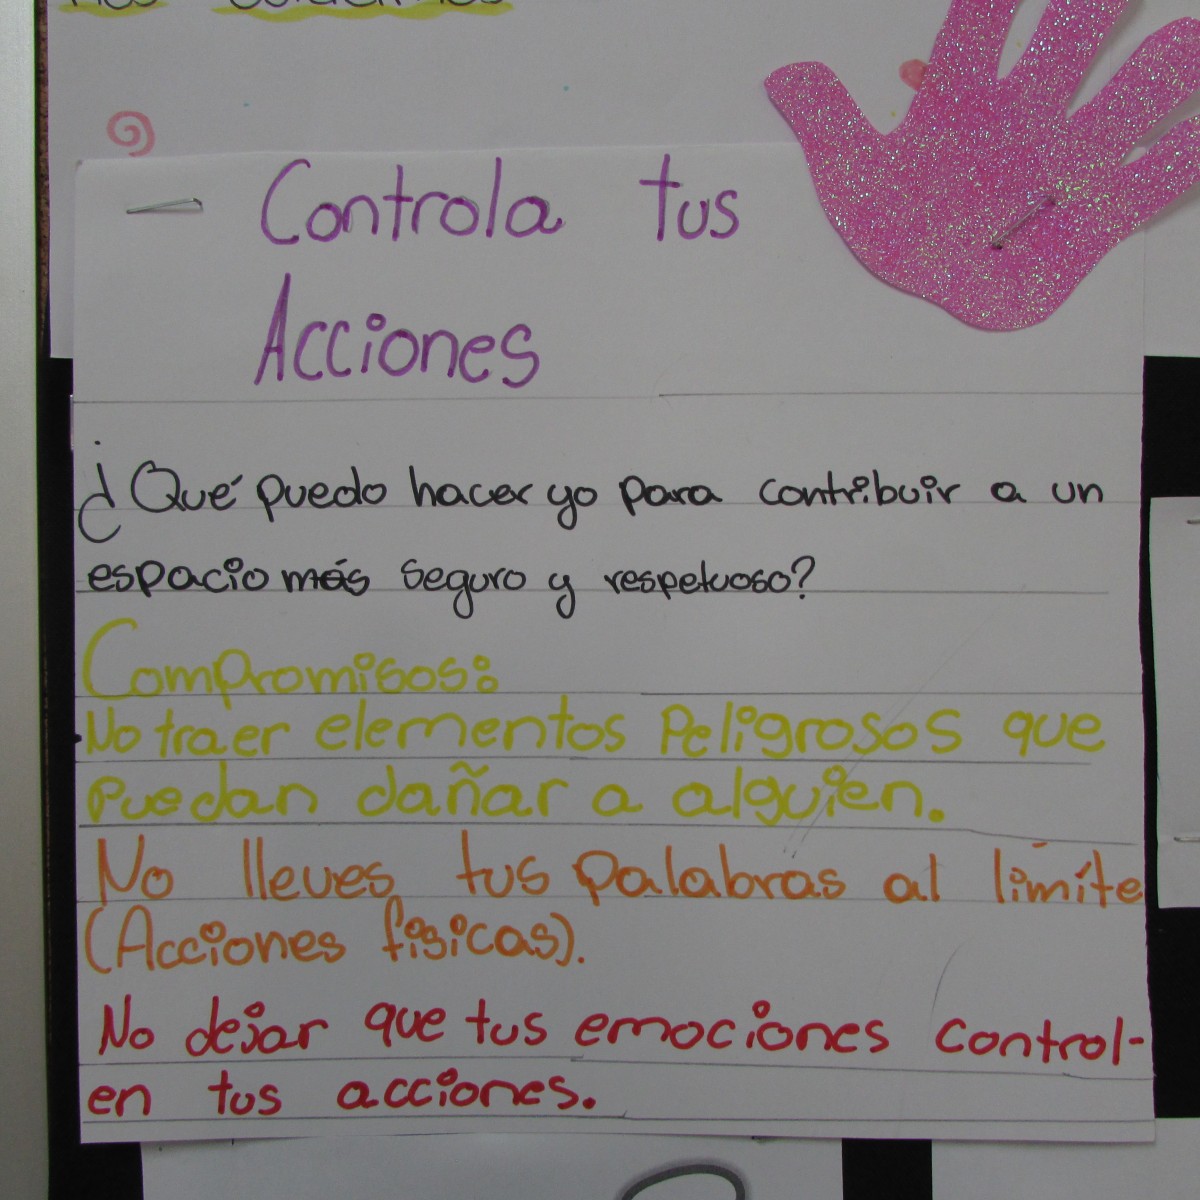 Controla tus
Acciones
¿Qué puedo hacer yo para contribuir a un
espacio más seguro y respetuoso?
Compromisos:
No traer elementos Peligrosos que
puedan dañar a alguien.
No lleves tus palabras al límite
(Acciones físicas).
No dejar que tus emociones control-
en tus acciones.